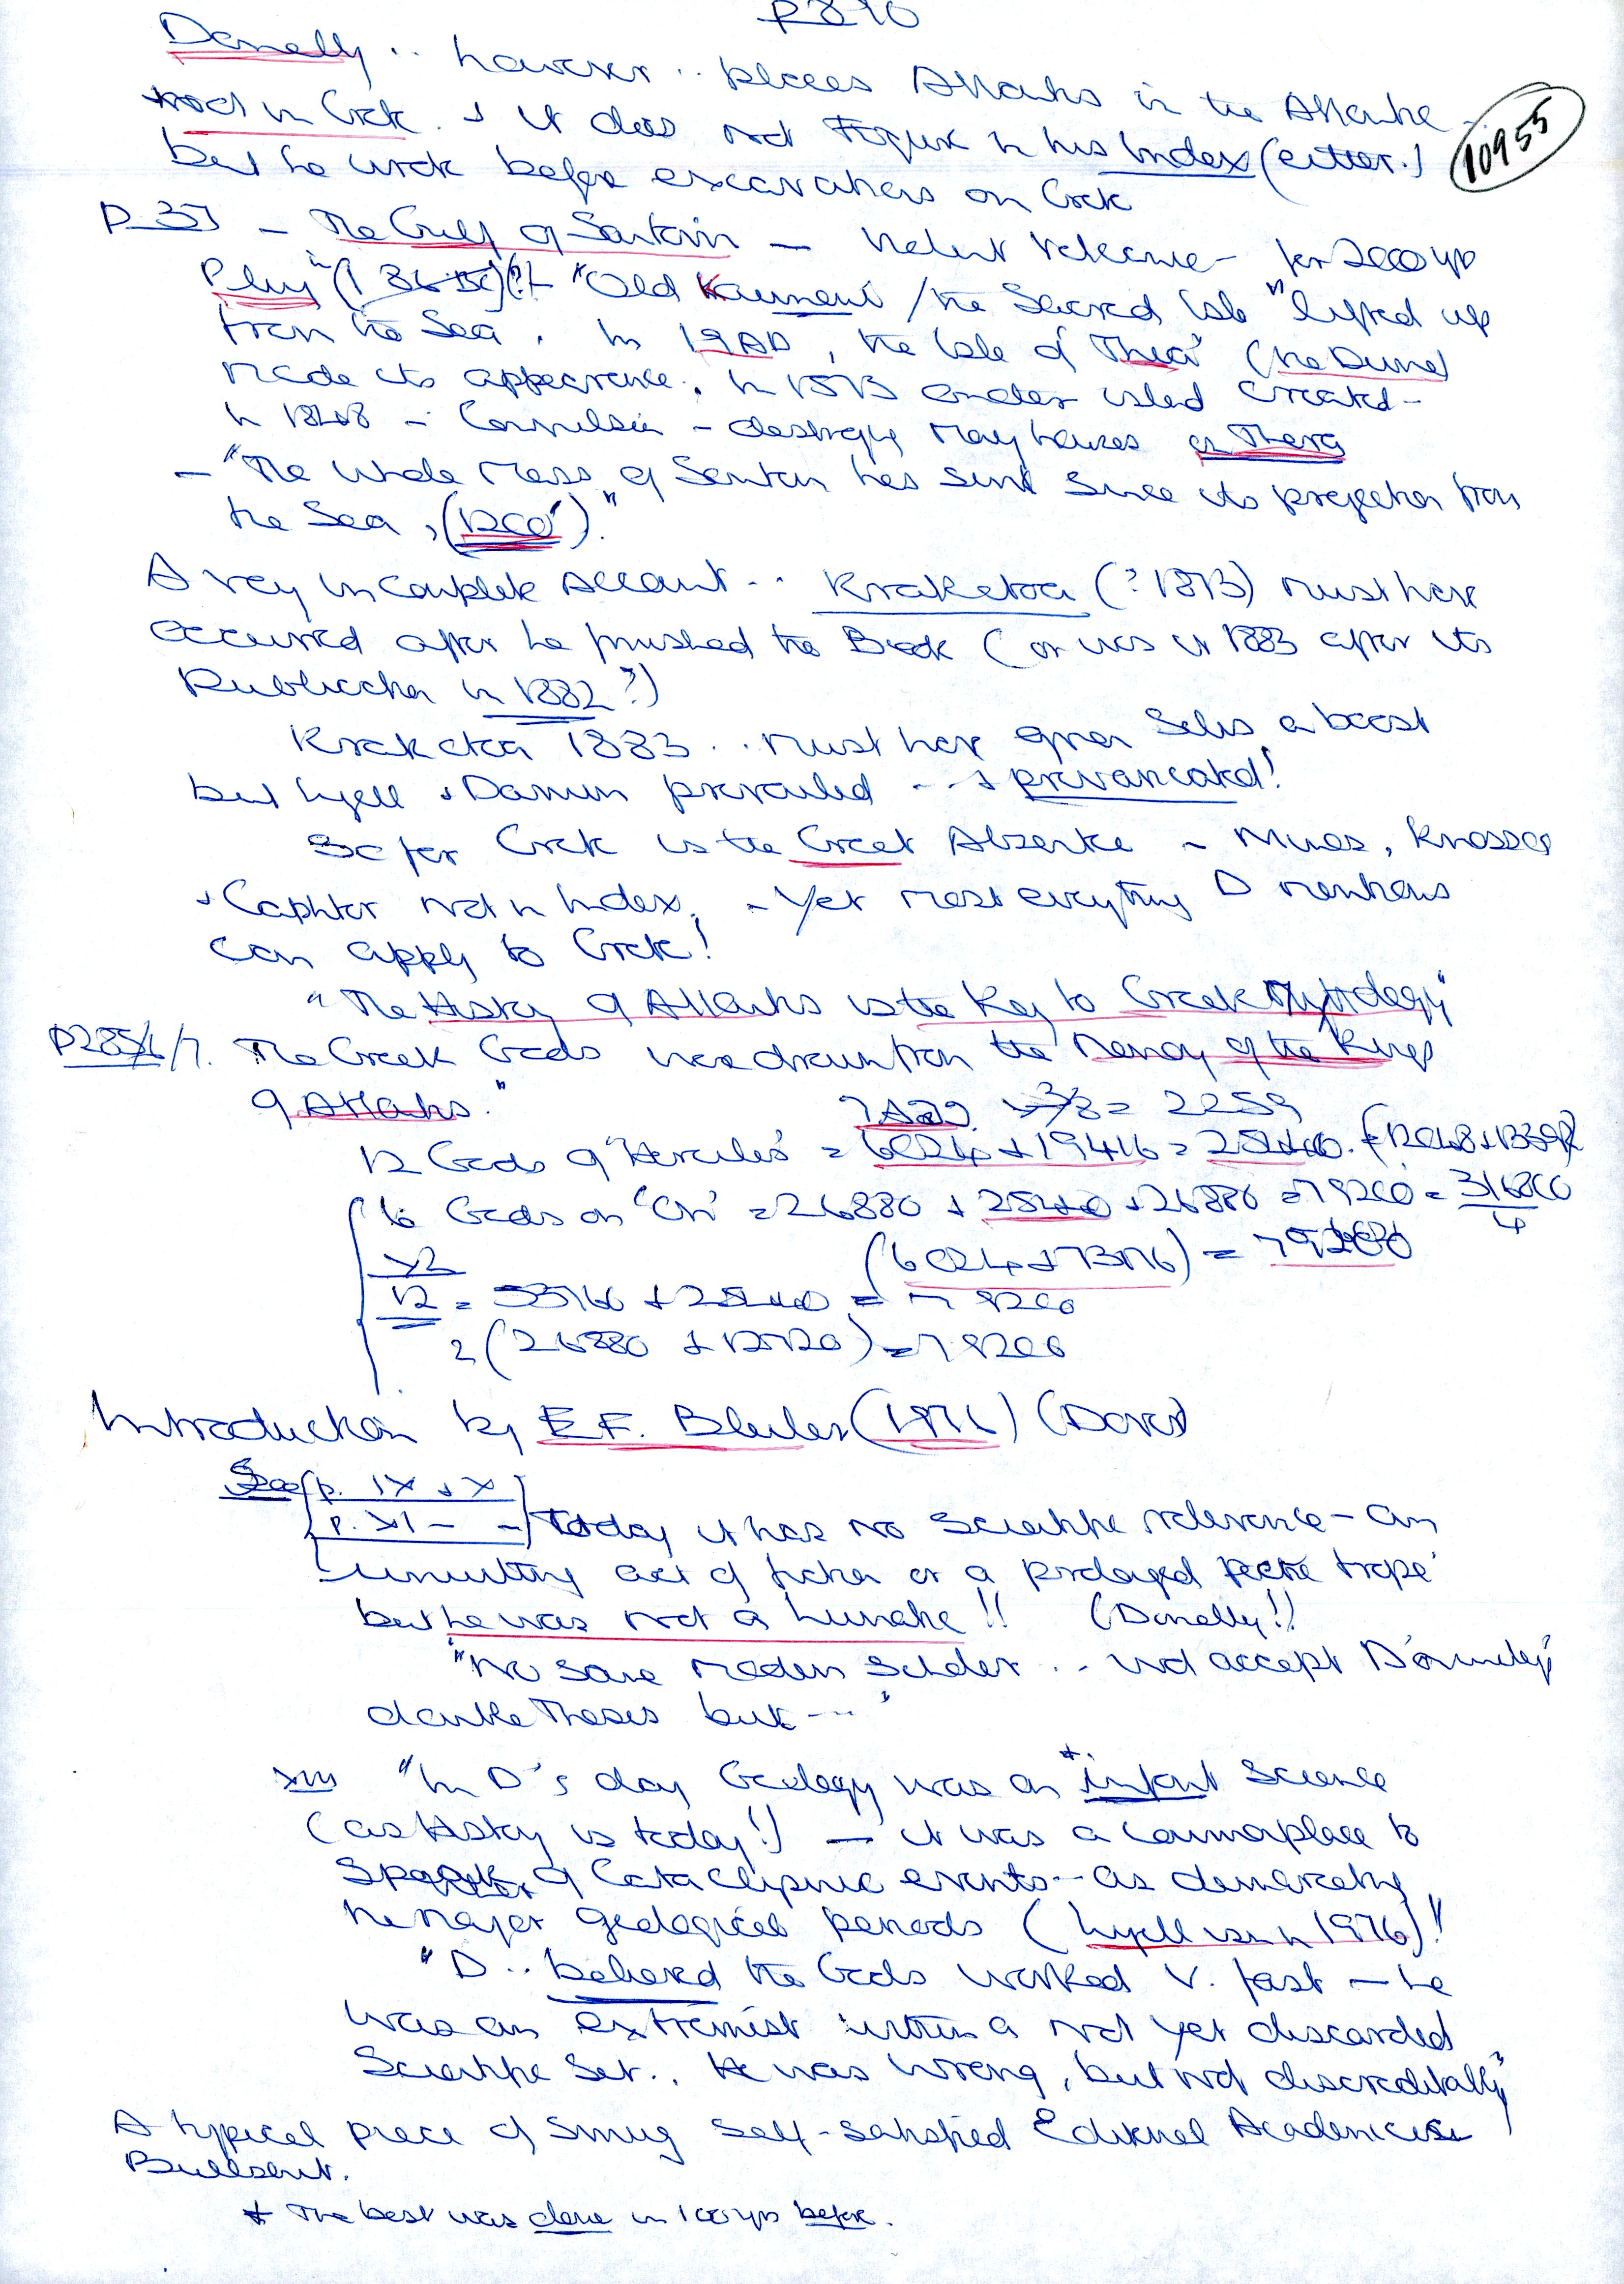 P 890
Donnelly .. however .. places Atlantis in the Atlantic -
not in Crete. & it does not Figure in his Index (either.)
10955
but he wrote before excavations on Crete
P 37 - The Gulf of Santorin - violent volcanic - for 2000 yrs
Pliny "(186 BC)(?)- "Old Kaimeni / the Sacred Isle "lifted up
from the Sea. In 19AD, the Isle of Thia" (the Divine)
made its appearance. In 1573 another island created -
in 1848 - Convulsion - destroying many houses in Thera
- "The Whole Mass of Santorin has sunk since its projection from
the Sea, (1200')."
A very incomplete Account .. Krakatoa (?1873) must have
occurred after he finished the Book (or was it 1883 after its
Publication in 1882?)
Krakatoa 1883 .. must have given Sales a boost
but Lyell & Darwin prevailed .. & prevaricated!
So far Crete is the Great Absentee - Minos, Knossos
& Caphtor not in Index. - Yet most everything D mentions
can apply to Crete!
"The History of Atlantis is the Key to Greek Mythology"
P285/6/7. The Greek Gods were drawn from the Memory of the Kings
of Atlantis."
= 2259
12 Gods of 'Hercules' = 6024 + 19416 = 25440.
16 Gods on 'On' = 26880 + 25440 + 26880 = 79200 = 316800
4
(6024 + 73176) = 79200
12 = 53760 + 25440 = 79200
2(26880 + 12720) = 79200
Introduction by E.F. Bleiler (1976) (Dover)
See p. IX & X
p. XI - - Today it has no Scientific relevance - an
unwitting act of fiction or a prolonged poetic trope'
but he was not a Lunatic!! (Donnelly!!)
"No sane modern Scholar .. wd accept Donnelly's
Theses but --- "
XIII "In D's day Geology was an *infant Science
(as History is today!) - it was a commonplace to
Speak of Cataclysmic events -- as demarcating
the major geological periods (Lyell was in 1976)!"
"D .. believed the Gods worked V. fast - he
was an extremist within a not yet discarded
Scientific Set.. He was wrong, but not discreditably"
A typical piece of smug self-satisfied Editorial Academicism
Bullshit.
* The best was done in 100 yrs before.